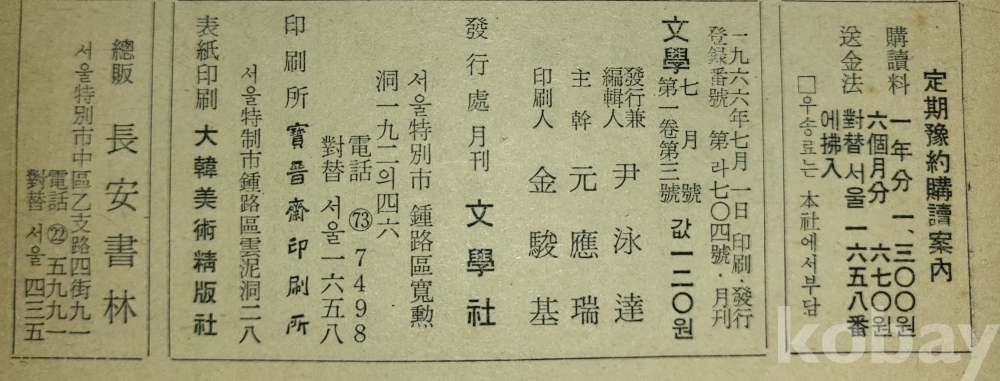 定期豫約購讀案內
購讀料 一年分 一、三〇〇원
六個月分 六七〇원
送金法 對替 서울 一六五八番
에拂入
□우송료는 本社에서부담
一九六六年七月一日 印刷・發行
登録番號 第 라七〇四號・月刊
文學 七月號 값 一二〇원
第一卷第三號
發行兼
編輯人 尹泳達
主幹 元應瑞
印刷人 金駿基
發行處 月刊 文學社
서울特別市 鍾路區寬勳
洞一九二의四六
電話 ㉓7498
對替 서울一六五八
印刷所 寶晋齋印刷所
서울特制市鍾路區雲泥洞二八
表紙印刷 大韓美術精版社
總販 長安書林
서울特別市中區乙支路四街九一
電話 ㉒ 五九九一
對替 서울 四三五
kobay